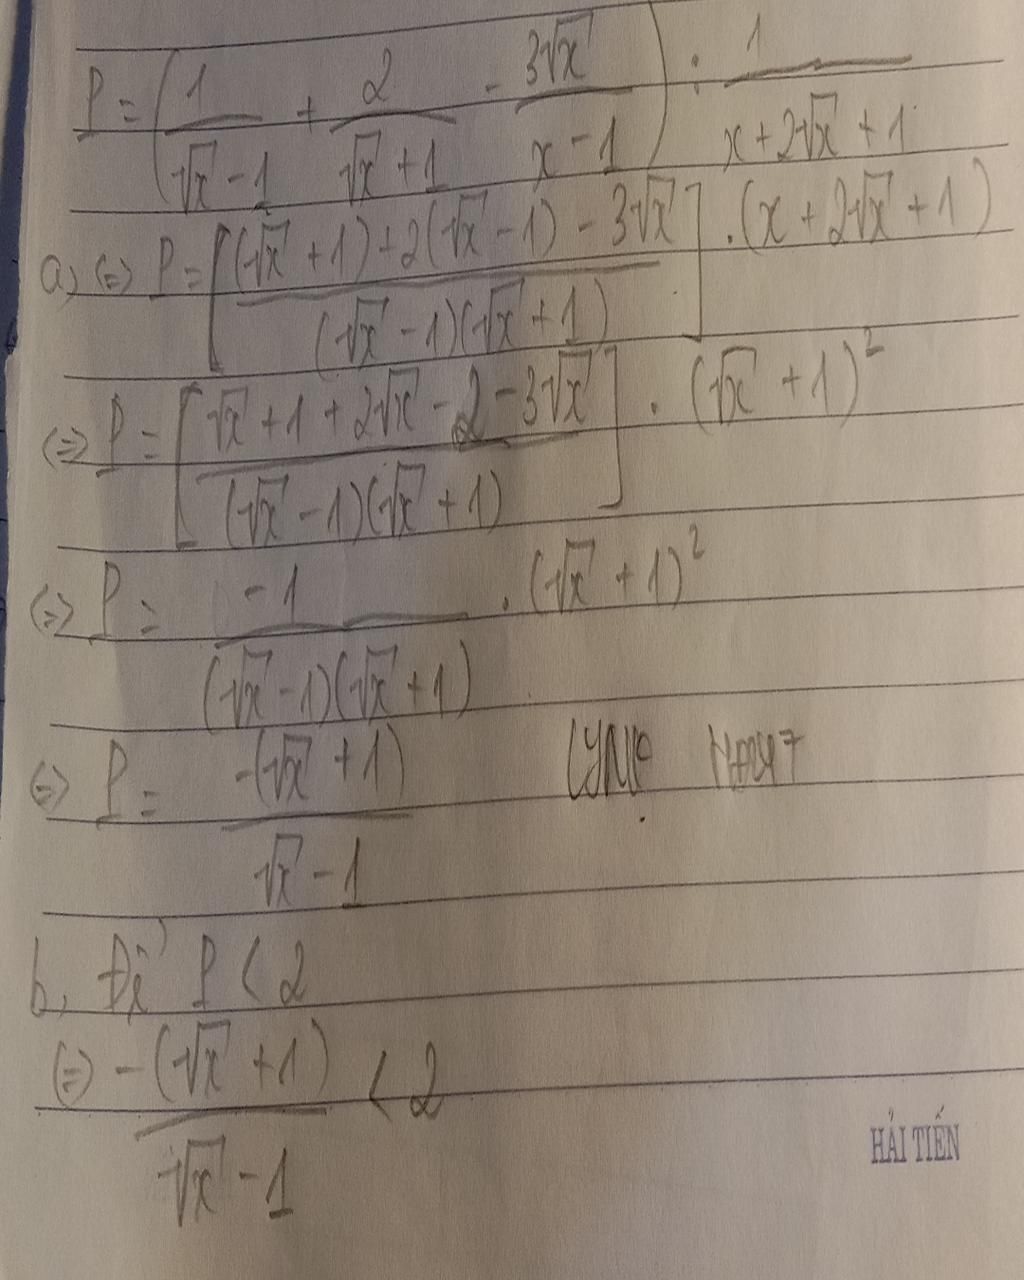 P = (1/(√x - 1) + 2/(√x + 1) - 3√x/(x - 1)) : 1/(x + 2√x + 1)
a) (=) P = [((√x + 1) + 2(√x - 1) - 3√x)/((√x - 1)(√x + 1))] . (x + 2√x + 1)
(=) P = [(√x + 1 + 2√x - 2 - 3√x)/((√x - 1)(√x + 1))] . (√x + 1)²
(=) P = -1/((√x - 1)(√x + 1)) . (√x + 1)²
(=) P = -(√x + 1)/(√x - 1)
b, Để P < 2
(=) -(√x + 1)/(√x - 1) < 2
HẢI TIẾN